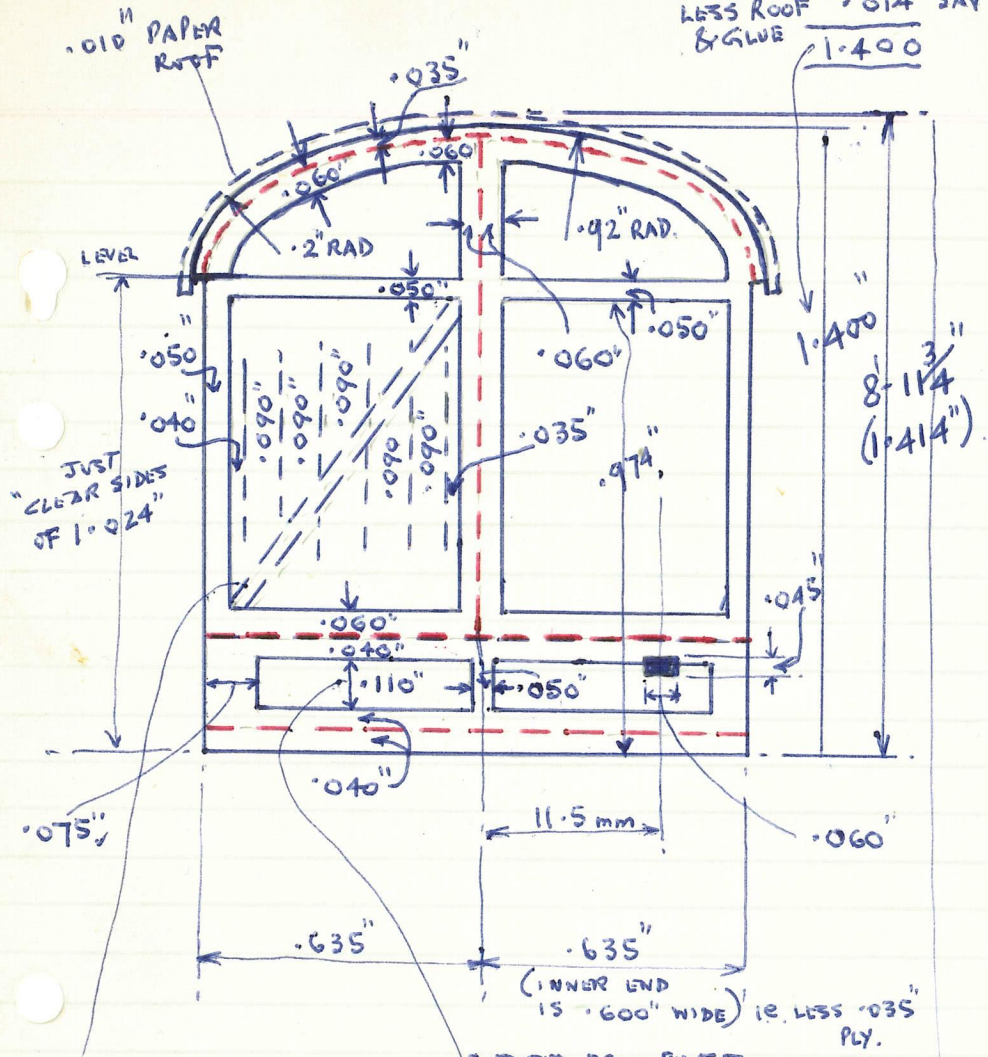 .010" PAPER
ROOF
LESS ROOF .014 SAY
& GLUE
1.400
.035"
.060"
.060"
.2" RAD
.92" RAD.
LEVEL
.050"
.050"
.060"
.050"
.040"
.090"
.090"
.090"
.090"
.090"
.035"
.974"
1.400"
8'-11 3/4"
(1.414")
JUST
"CLEAR SIDES
OF 1.024"
.060"
.040"
.110"
.050"
.045"
.040"
.075"
11.5 mm
.060"
.635"
.635"
(INNER END
IS .600" WIDE) ie. LESS .035"
PLY.